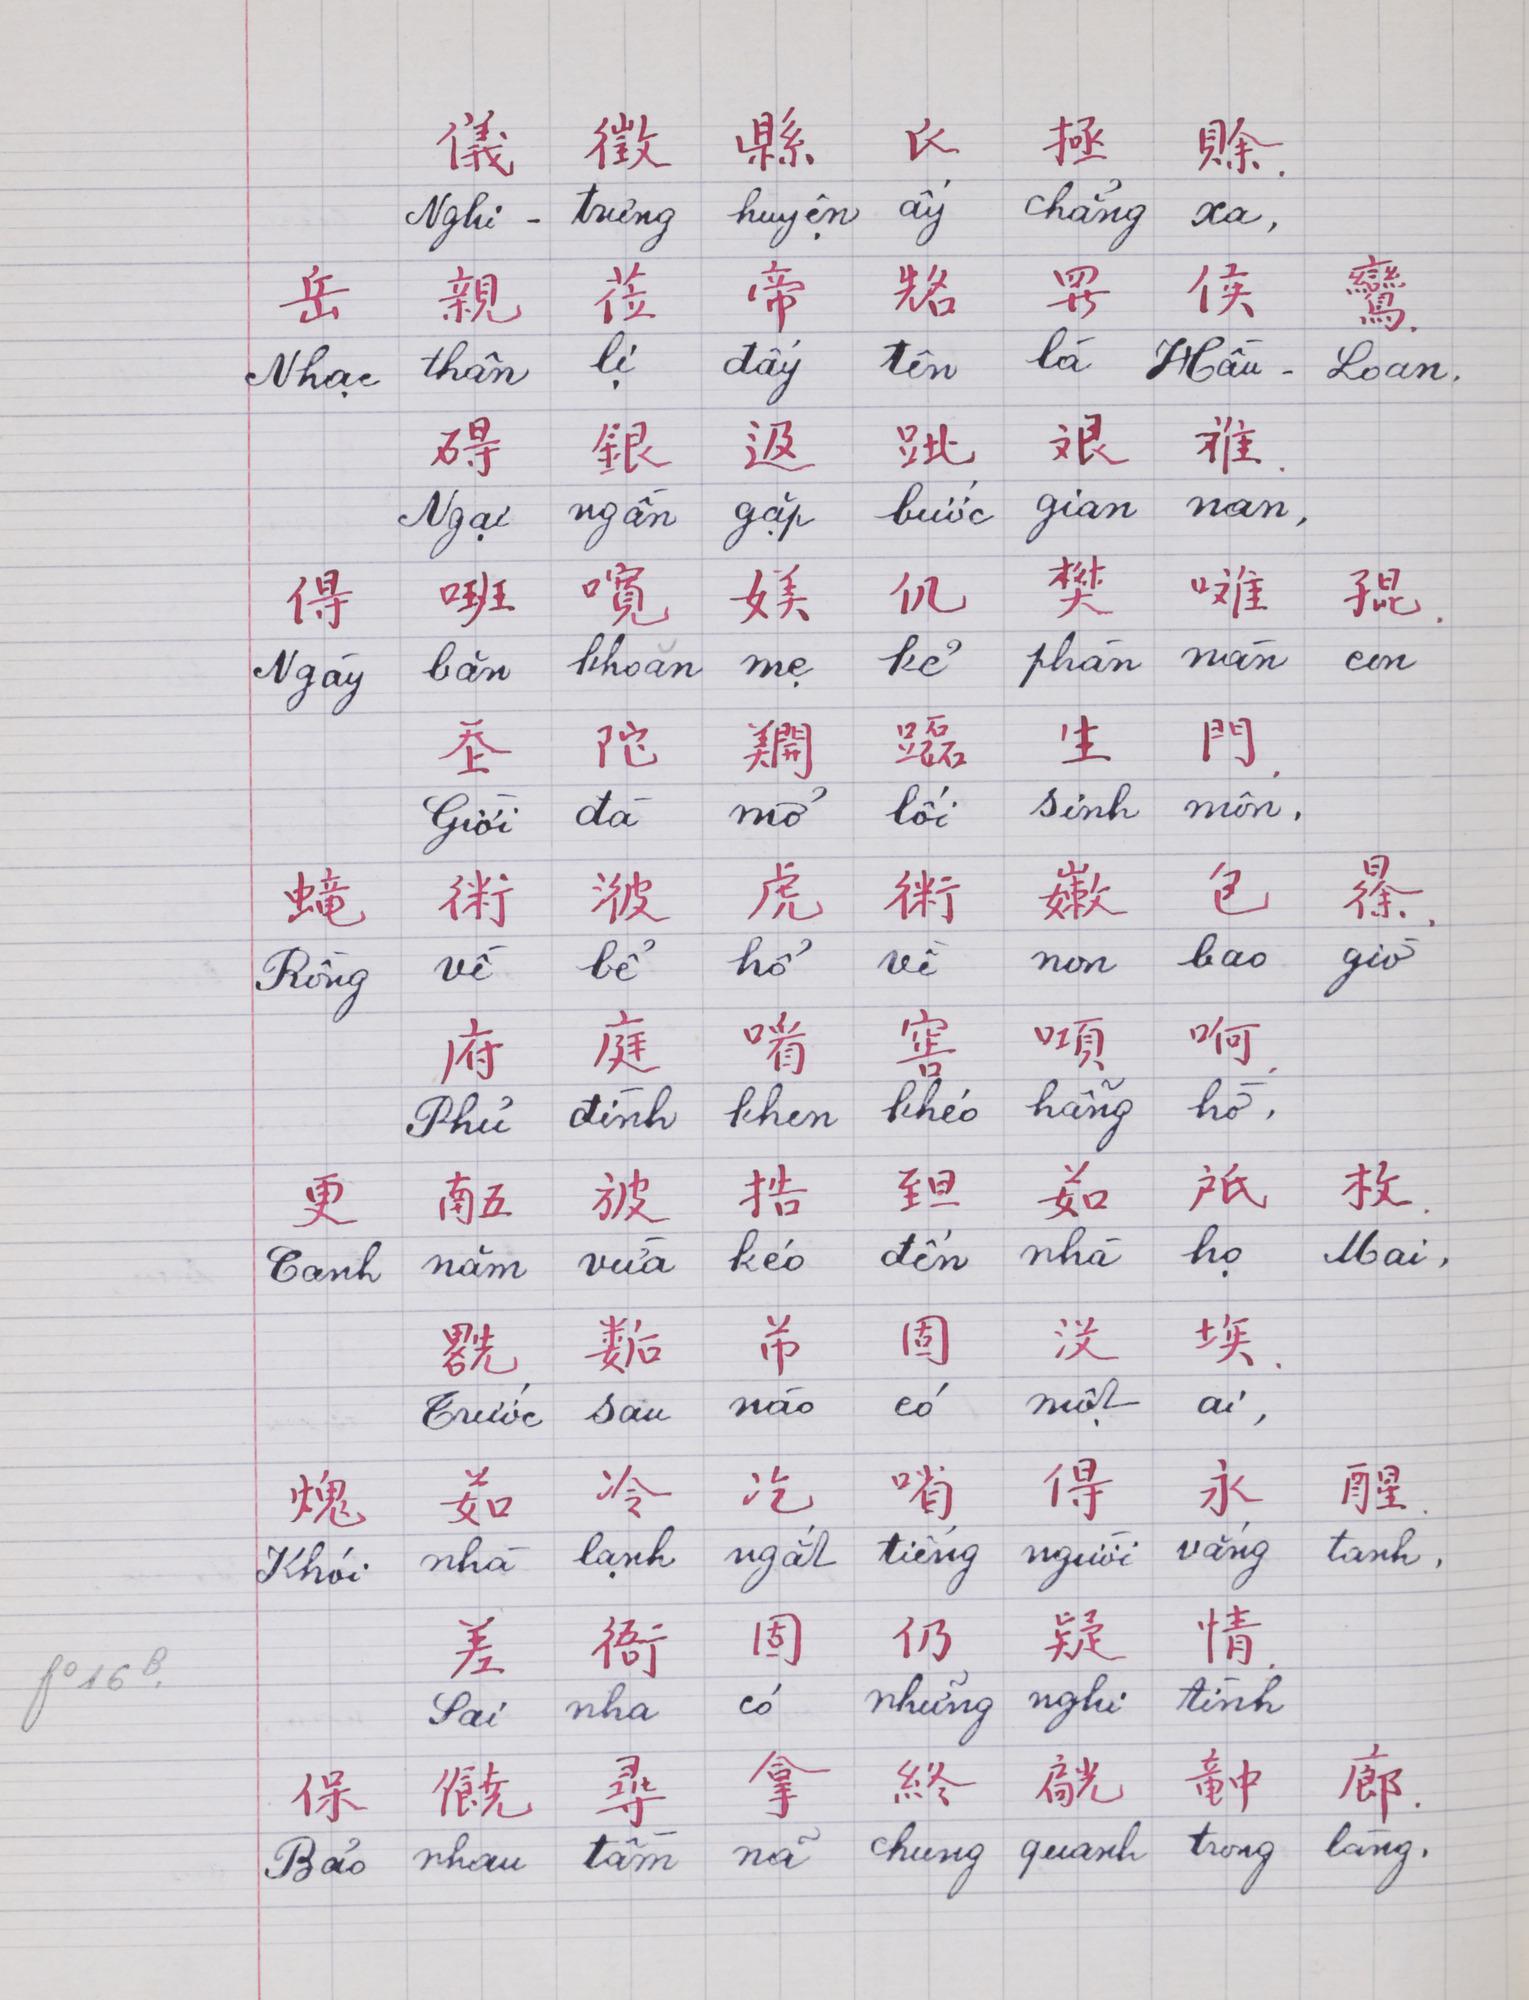 儀 徵 縣 氏 極 賖.
Nghi - trưng huyện ấy chẳng xa,
岳 親 蒞 帝 𠸛 罢 侯 鸞.
Nhạc thân lị đấy tên là Hầu - Loan.
碍 銀 趿 跐 艰 难.
Ngại ngần gặp bước gian nan,
得 𠴞 嚝 媄 仉 樊 𠹌 𡥵.
Ngày băn khoăn mẹ kẻ phàn nàn con
𡗶 陀 𫔭 𨇒 生 門.
Giời đã mở lối sinh môn,
𧏵 術 㴜 虎 術 嫩 包 𣇞.
Rồng về bể hổ về non bao giờ
府 庭 𠸦 窖 㖼 呵.
Phủ đình khen khéo hẵng hồ,
更 𠄼 㝵 捁 𦤾 茹 𢩜 枚.
Canh năm vừa kéo đến nhà họ Mai,
𠓀 𡢐 芇 固 没 埃.
Trước sau nào có một ai,
煨 茹 冷 汔 㗂 得 永 醒.
Khói nhà lạnh ngắt tiếng người vắng tanh,
差 衙 固 仍 疑 情.
Sai nha có những nghi tình
fº 16 B.
保 饒 尋 拿 終 𨒺 𥪝 廊.
Bảo nhau tầm nã chung quanh trong làng.